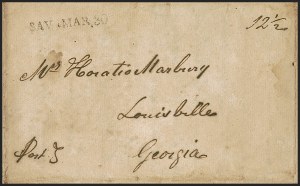 SAV. MAR. 30
12½
Mr. Horatio Marbury
Louisville
Georgia